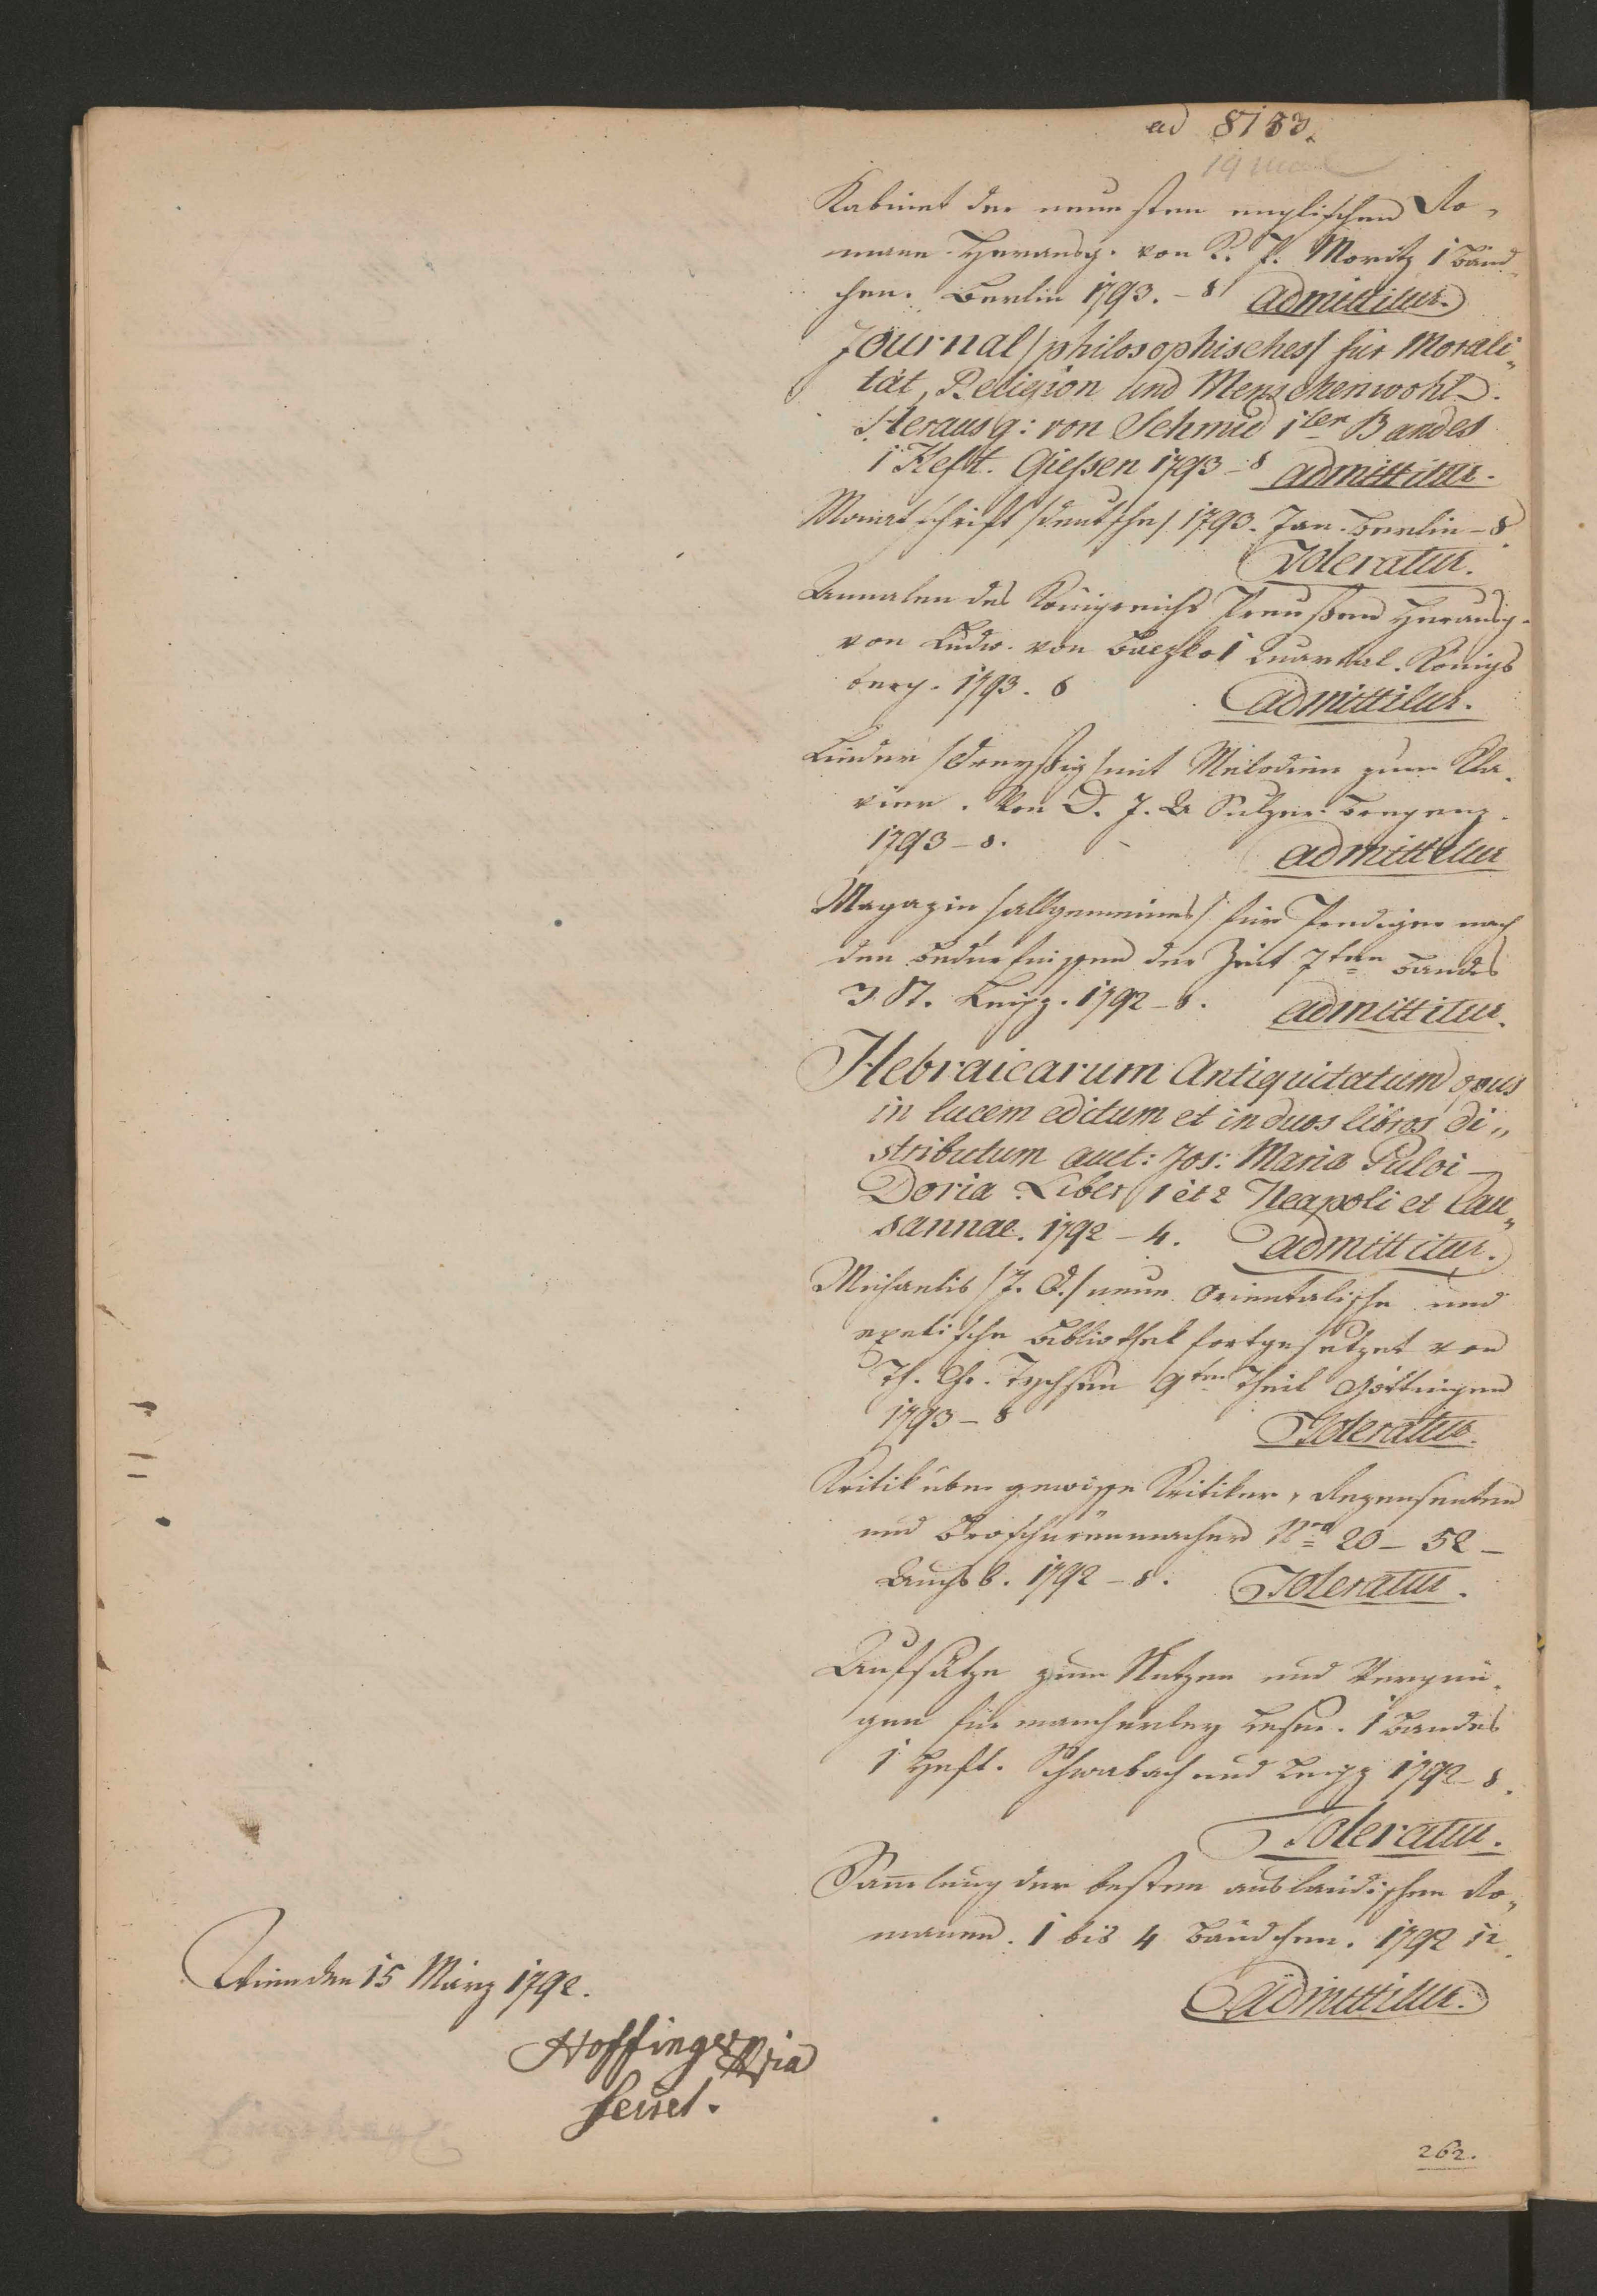 ad 8133.
19 
Kabinet der neuesten englischen Ro-
mane Herausg. von K. P. Moritz 1 Bänd-
chen. Berlin 1793. - 8 Admittitur.
Journal /philosophisches/ für Morali-
tät, Religion und Menschenwohl.
Herausg: von Schmid 1ten Bandes
1 Heft. Giessen 1793 - 8 admittitur.
Monatschrift /deutsche/ 1793. Jan. Berlin - 8.
Toleratur.
Annalen des Königreichs Preußen Herausg.
von Ludw. von Baczko 1 Quartal. Königs
berg. 1793. 8 Admittitur.
Lieder /dreyßig/ mit Melodien zum Kla-
vier. Von D. J. A Sulzer Bregenz.
1793 - 8. admittitur
Magazin /allgemeines/ für Prediger nach
den Bedürfnissen der Zeit 7ten Bandes
3 St. Leipz. 1792 - 8. admittitur.
Hebraicarum Antiquitatum opus
in lucem editum et in duos libros di„
stributum auct: Jos: Maria Pulci -
Doria Liber 1 et 2 Neapoli et Lau„
sannae. 1792 - 4. admittitur.
Michaelis /J. D./ neue orientalische und
exetische Bibliothek fortgesetzet von
Th. Chr. Tychsen 9ten Theil Göttingen
1793 - 8 Toleratur.
Kritik über gewisse Kritiker, Rezensenten
und Broschürenmacher Nro 20 - 52 -
Augsb. 1792 - 8. Toleratur.
Aufsätze zum Nutzen und Vergnü-
gen für mancherley Leser. 1 Bandes
1 Heft. Schwabach und Leipz 1792 - 8.
Toleratur.
Sam̅lung der besten ausländischen Ro-
manen. 1 bis 4 Bändchen. 1792 12.
Admittitur.
Wien den 15 März 1792.
Hoffinger
262.